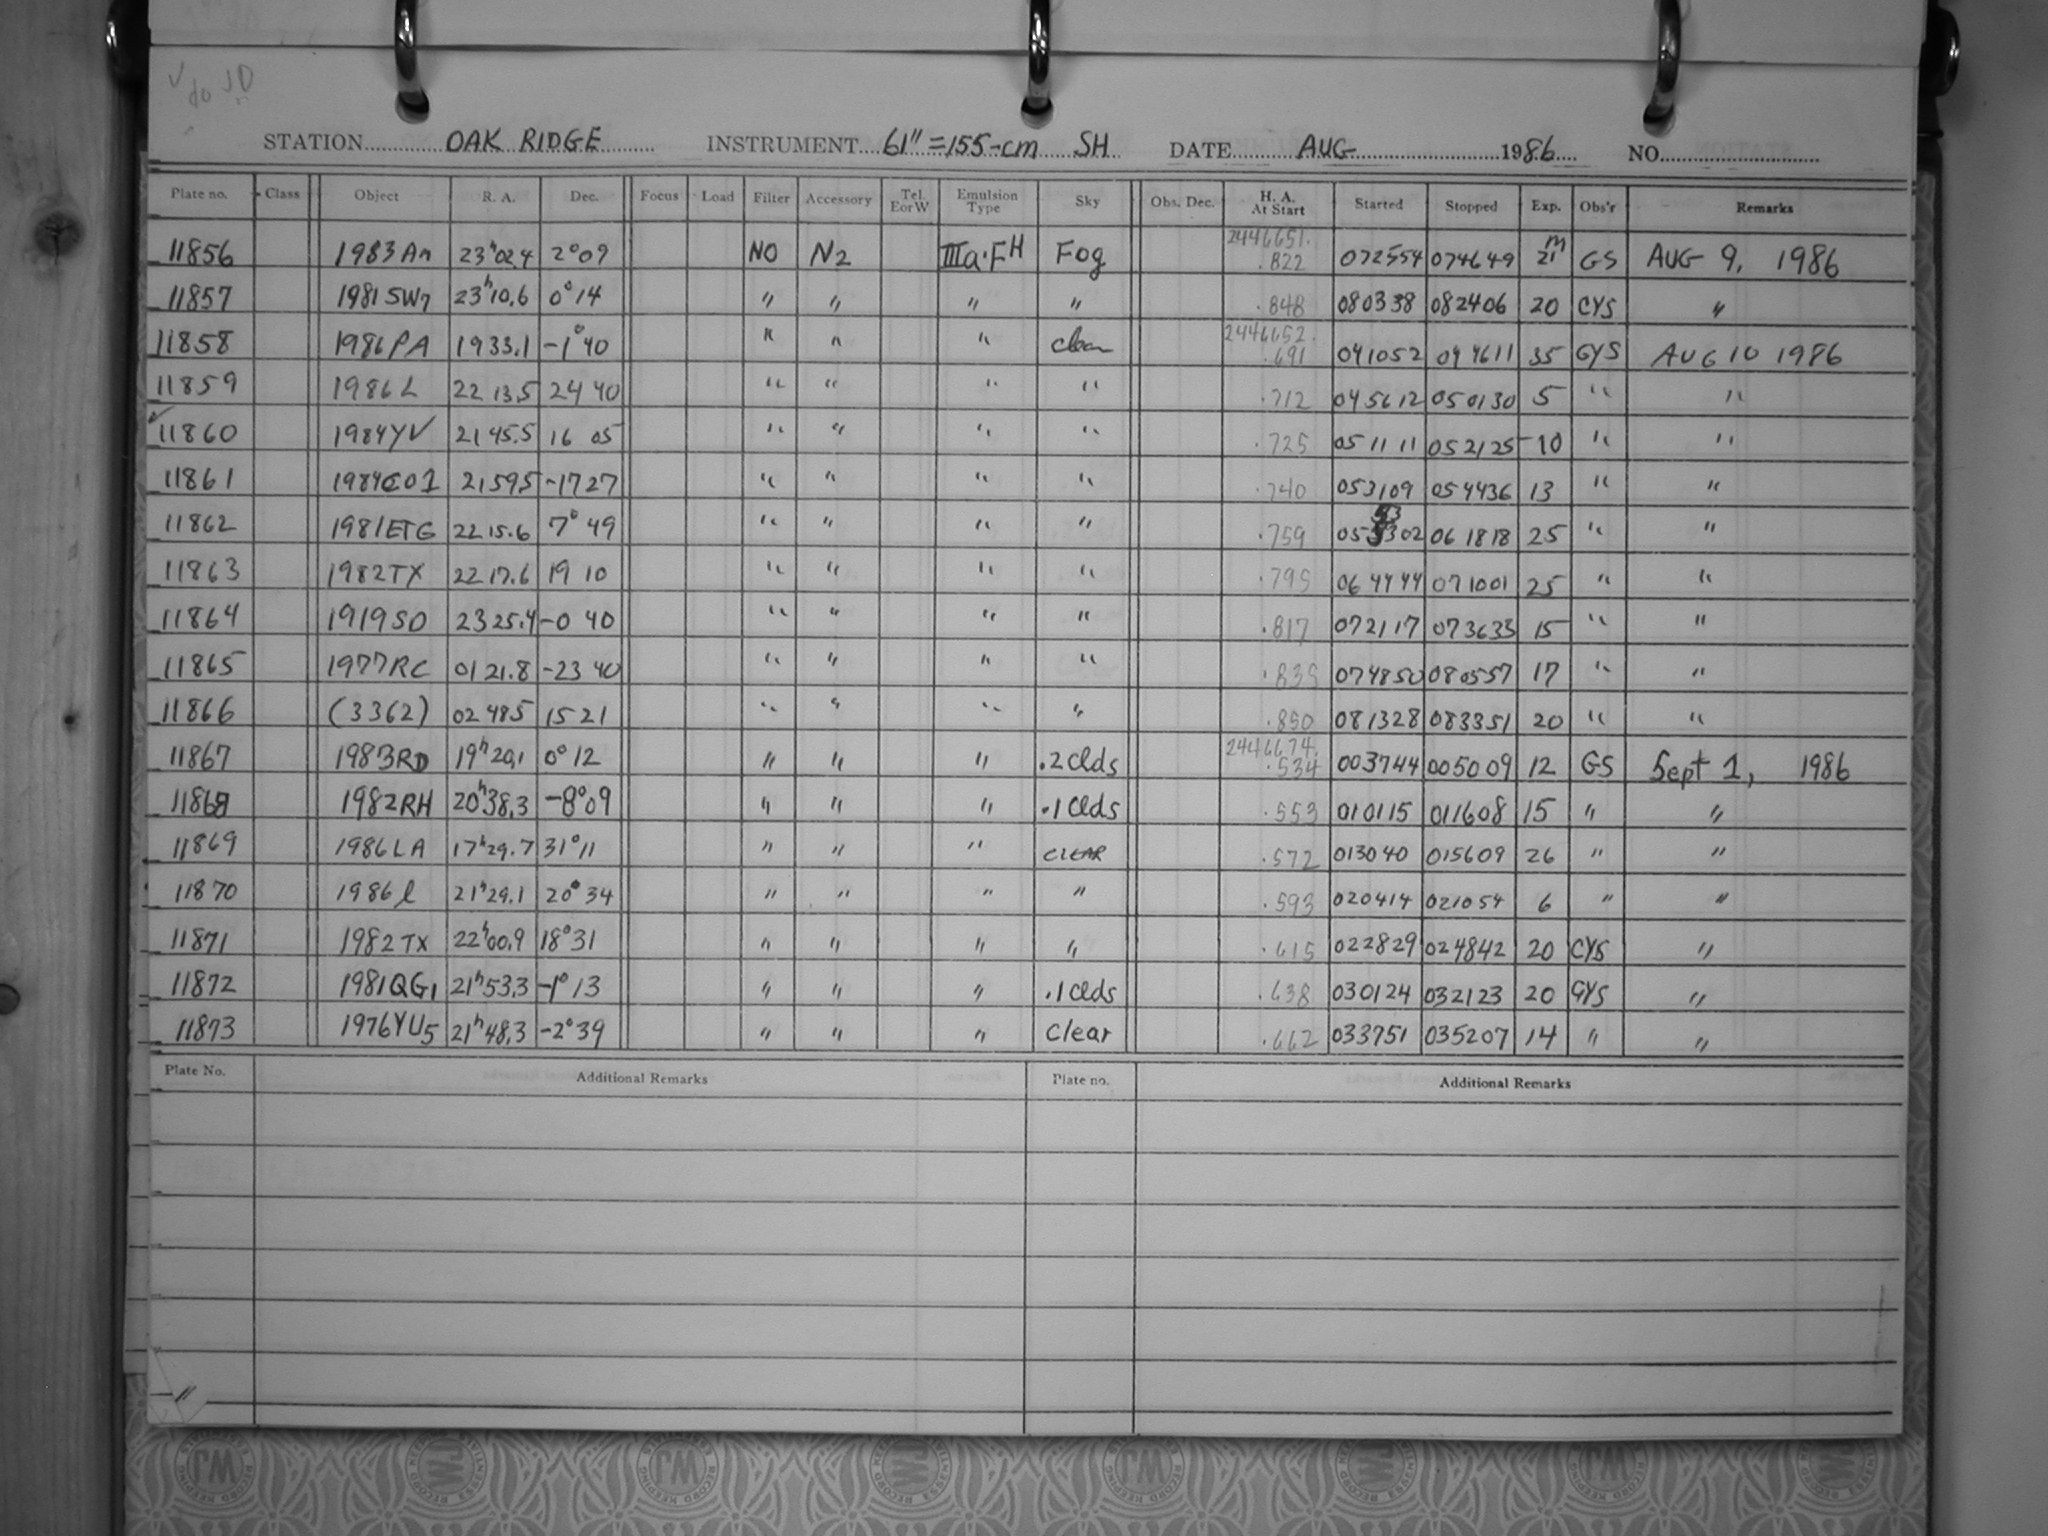 √ do JD
STATION OAK RIDGE INSTRUMENT 61"=155-cm SH DATE AUG 1986 NO.
Plate no. Class Object R. A. Dec. Focus Load Filter Accessory Tel. E or W Emulsion Type Sky Obs. Dec. H. A. At Start Started Stopped Exp. Obs'r Remarks
11856 1983An 23h02.4 2°09 NO N2 IIIa-FH Fog 2446651. .822 072554 074649 21m GS AUG 9, 1986
11857 1981SW7 23h10.6 0°14 " " " " .848 080338 082406 20 CYS "
11858 1986PA 1933.1 -1°40 " " " clear 2446652. .691 041052 044611 35 GYS AUG 10 1986
11859 1986L 22 13.5 24 40 " " " " .712 045612 050130 5 " "
11860 1984YV 2145.5 16 05 " " " " .725 051111 052125 10 " "
11861 1984CO1 21595 -1727 " " " " .740 053109 054436 13 " "
11862 1981ETG 2215.6 7°49 " " " " .759 055302 061818 25 " "
11863 1982TX 2217.6 19 10 " " " " .795 064444 071001 25 " "
11864 1919SO 2325.4 -0 40 " " " " .817 072117 073633 15 " "
11865 1977RC 0121.8 -23 40 " " " " .835 074850 080557 17 " "
11866 (3362) 02 485 1521 " " " " .850 081328 083351 20 " "
11867 1983RD 19h20.1 0°12 " " " .2 Clds 2446674. .534 003744 005009 12 GS Sept 1, 1986
11868 1982RH 20h38.3 -8°09 " " " .1 Clds .553 010115 011608 15 " "
11869 1986LA 17h29.7 31°11 " " " CLEAR .572 013040 015609 26 " "
11870 1986l 21h29.1 20°34 " " " " .593 020414 021054 6 " "
11871 1982TX 22h00.9 18°31 " " " " .615 022829 024842 20 CYS "
11872 1981QG1 21h53.3 -1°13 " " " .1 Clds .638 030124 032123 20 GYS "
11873 1976YU5 21h48.3 -2°39 " " " Clear .662 033751 035207 14 " "
Plate No. Additional Remarks Plate no. Additional Remarks
"